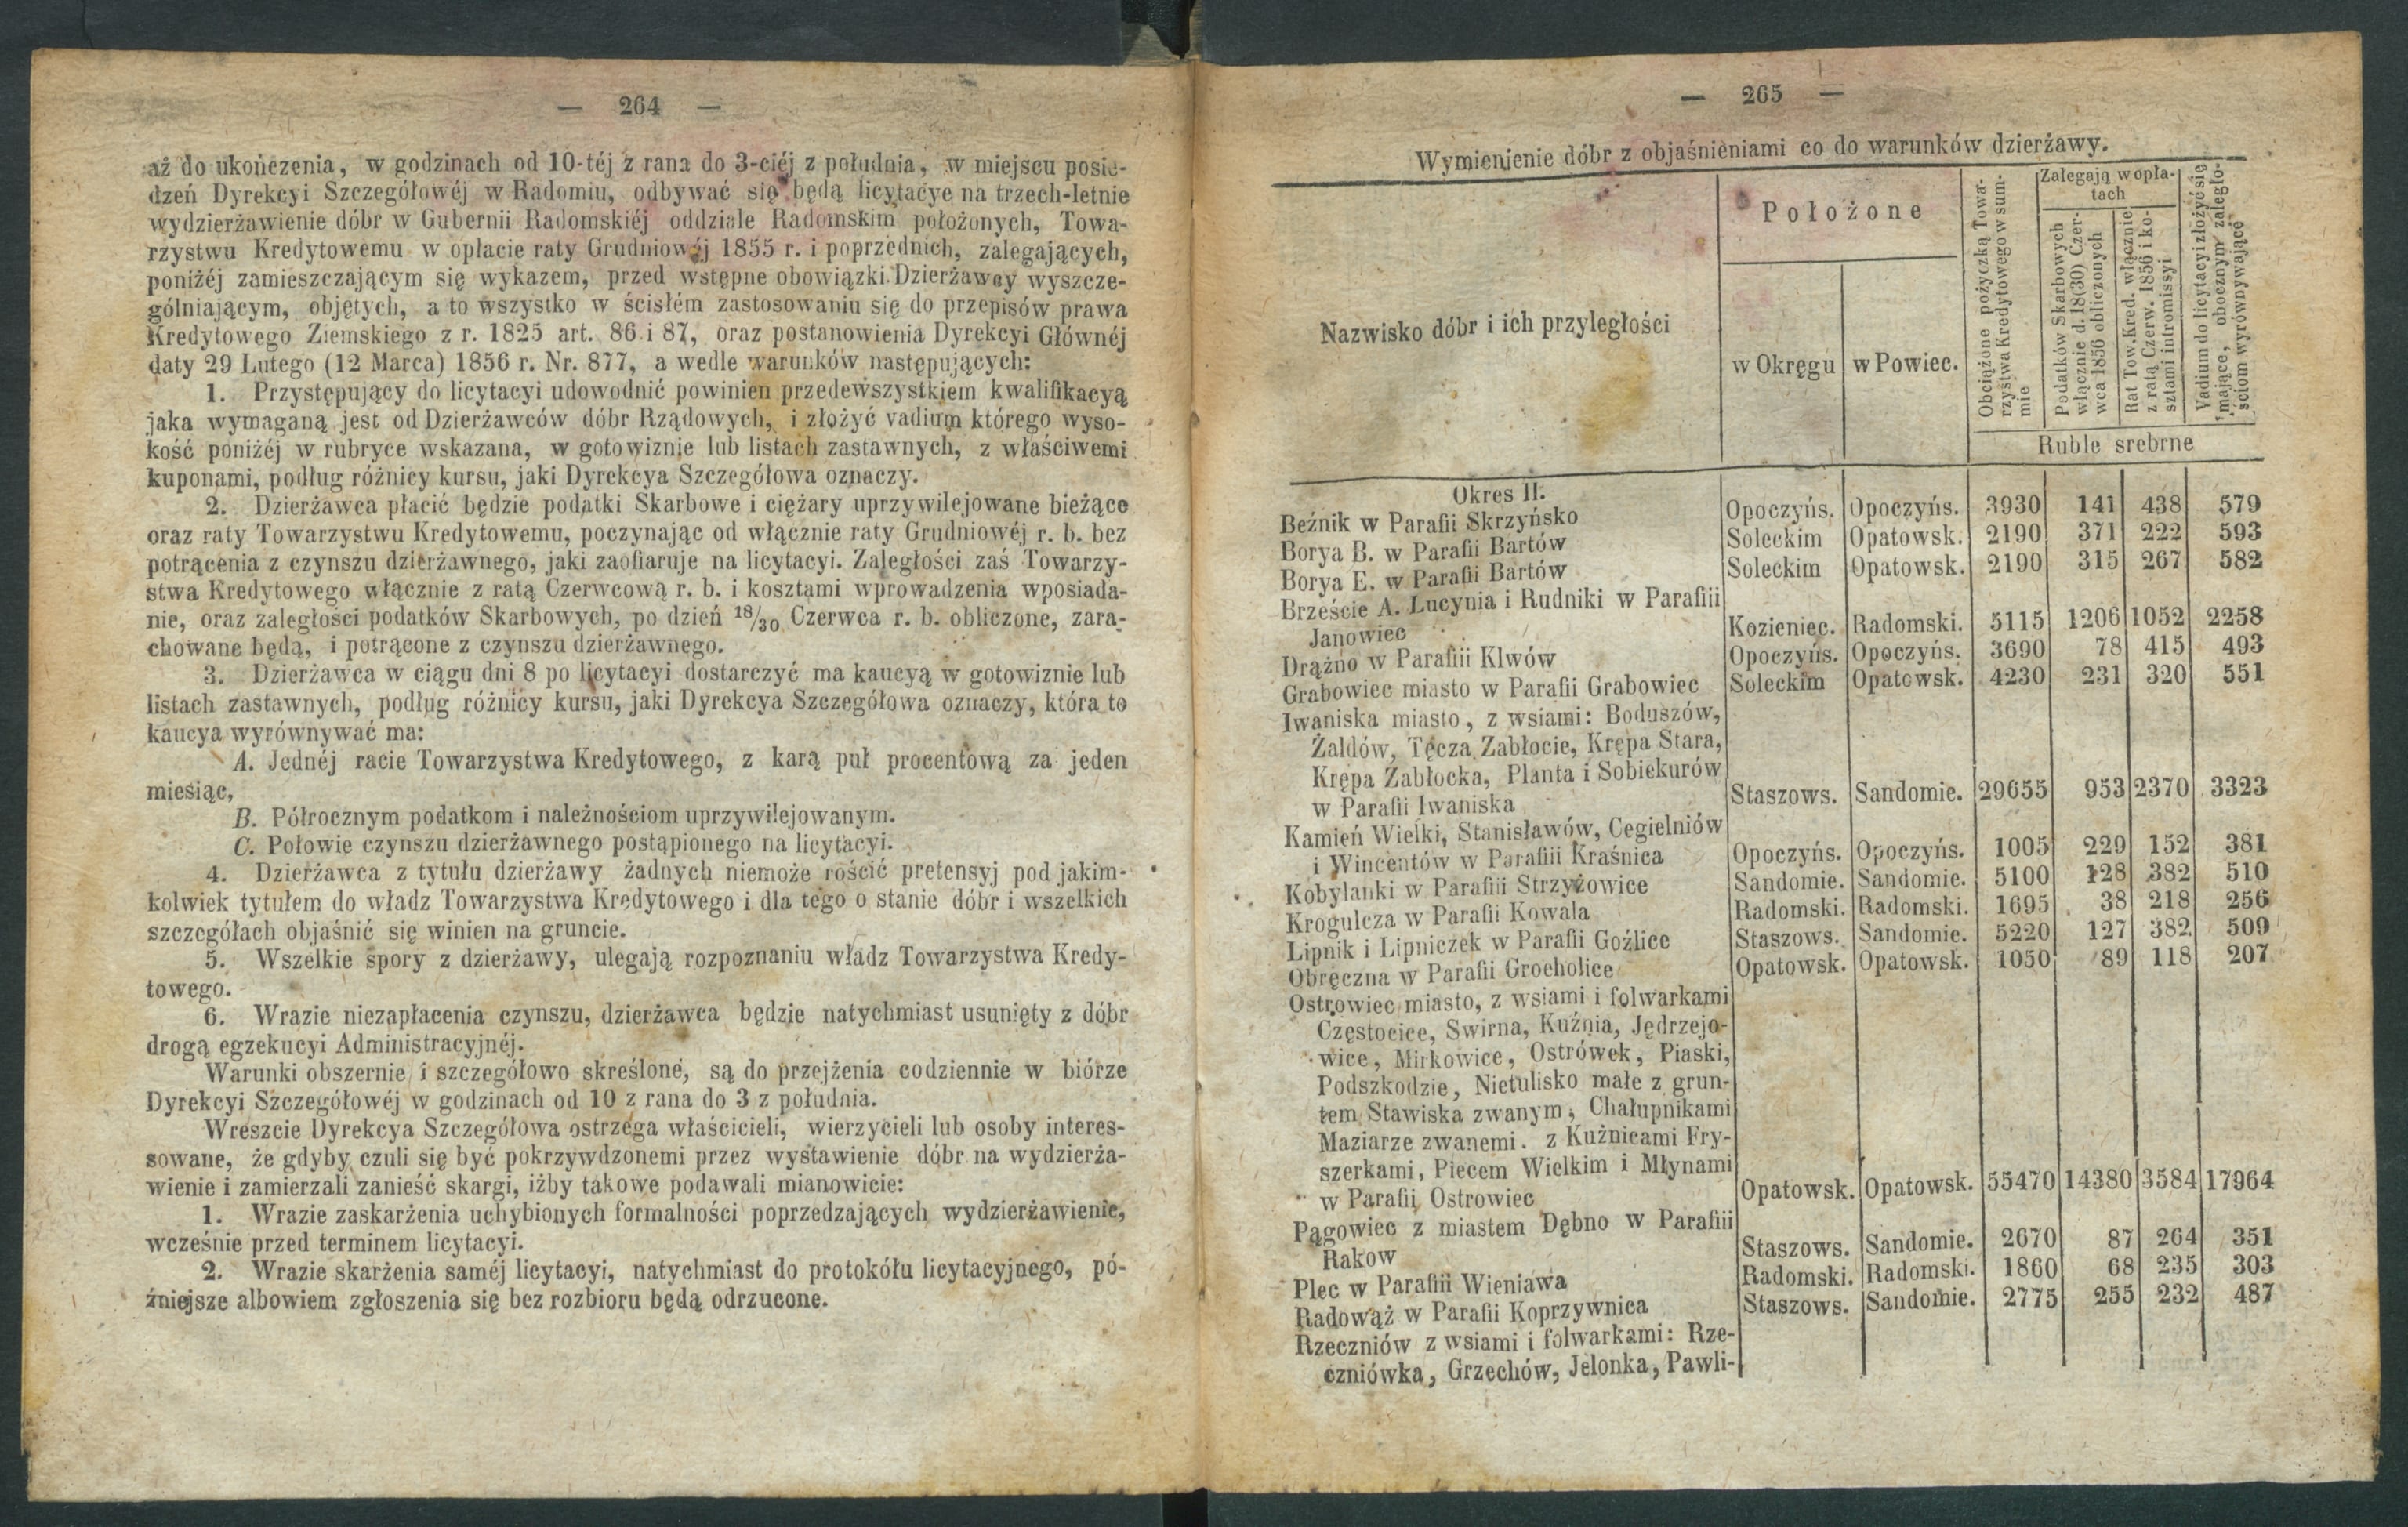 — 264 —
aż do ukończenia, w godzinach od 10-téj z rana do 3-ciéj z południa, w miejscu posie-
dzeń Dyrekcyi Szczegółowéj w Radomiu, odbywać się będą licytacye na trzech-letnie
wydzierżawienie dóbr w Gubernii Radomskiéj oddziale Radomskim położonych, Towa-
rzystwu Kredytowemu w opłacie raty Grudniowéj 1855 r. i poprzednich, zalegających,
poniżéj zamieszczającym się wykazem, przed wstępne obowiązki Dzierżawcy wyszcze-
gólniającym, objętych, a to wszystko w ścisłém zastosowaniu się do przepisów prawa
Kredytowego Ziemskiego z r. 1825 art. 86 i 87, oraz postanowienia Dyrekcyi Głównéj
daty 29 Lutego (12 Marca) 1856 r. Nr. 877, a wedle warunków następujących:
1. Przystępujący do licytacyi udowodnić powinien przedewszystkiem kwalifikacyą
jaka wymaganą jest od Dzierżawców dóbr Rządowych, i złożyć vadium którego wyso-
kość poniżéj w rubryce wskazana, w gotowiznie lub listach zastawnych, z właściwemi
kuponami, podług różnicy kursu, jaki Dyrekcya Szczegółowa oznaczy.
2. Dzierżawca płacić będzie podatki Skarbowe i ciężary uprzywilejowane bieżące
oraz raty Towarzystwu Kredytowemu, poczynając od włącznie raty Grudniowéj r. b. bez
potrącenia z czynszu dzierżawnego, jaki zaofiaruje na licytacyi. Zaległości zaś Towarzy-
stwa Kredytowego włącznie z ratą Czerwcową r. b. i kosztami wprowadzenia wposiada-
nie, oraz zaległości podatków Skarbowych, po dzień 18/30 Czerwca r. b. obliczone, zara-
chowane będą, i potrącone z czynszu dzierżawnego.
3. Dzierżawca w ciągu dni 8 po licytacyi dostarczyć ma kaucyą w gotowiznie lub
listach zastawnych, podług różnicy kursu, jaki Dyrekcya Szczegółowa oznaczy, która to
kaucya wyrównywać ma:
A. Jednéj racie Towarzystwa Kredytowego, z karą puł procentową za jeden
miesiąc,
B. Półrocznym podatkom i należnościom uprzywilejowanym.
C. Połowie czynszu dzierżawnego postąpionego na licytacyi.
4. Dzierżawca z tytułu dzierżawy żadnych niemoże rościć pretensyj pod jakim-
kolwiek tytułem do władz Towarzystwa Kredytowego i dla tego o stanie dóbr i wszelkich
szczegółach objaśnić się winien na gruncie.
5. Wszelkie spory z dzierżawy, ulegają rozpoznaniu władz Towarzystwa Kredy-
towego.
6. Wrazie niezapłacenia czynszu, dzierżawca będzie natychmiast usunięty z dóbr
drogą egzekucyi Administracyjnéj.
Warunki obszernie i szczegółowo skreślone, są do przejżenia codziennie w biórze
Dyrekcyi Szczegółowéj w godzinach od 10 z rana do 3 z południa.
Wreszcie Dyrekcya Szczegółowa ostrzega właścicieli, wierzycieli lub osoby interes-
sowane, że gdyby czuli się być pokrzywdzonemi przez wystawienie dóbr na wydzierża-
wienie i zamierzali zanieść skargi, iżby takowe podawali mianowicie:
1. Wrazie zaskarżenia uchybionych formalności poprzedzających wydzierżawienie,
wcześnie przed terminem licytacyi.
2. Wrazie skarżenia saméj licytacyi, natychmiast do protokółu licytacyjnego, pó-
źniejsze albowiem zgłoszenia się bez rozbioru będą odrzucone.
— 265 —
Wymienienie dóbr z objaśnieniami co do warunków dzierżawy.
Nazwisko dóbr i ich przyległości
Położone
w Okręgu w Powiec.
Obciążone pożyczką Towa-
rzystwa Kredytowego w sum-
mie
Zalegają w opła-
tach
Podatków Skarbowych
włącznie d. 18(30) Czer-
wca 1856 obliczonych
Rat Tow. Kred. włącznie
z ratą Czerw. 1856 i ko-
sztami intromissyi
Vadium do licytacyi złożyć się
mające, obocznym zaległo-
ściom wyrównywające
Ruble srebrne
Okres II.
Beźnik w Parafii Skrzyńsko Opoczyńs. Opoczyńs. 3930 141 438 579
Borya B. w Parafii Bartów Soleckim Opatowsk. 2190 371 222 593
Borya E. w Parafii Bartów Soleckim Opatowsk. 2190 315 267 582
Brzeście A. Lucynia i Rudniki w Parafiii
Janowiec Kozieniec. Radomski. 5115 1206 1052 2258
Drążno w Parafiii Klwów Opoczyńs. Opoczyńs. 3690 78 415 493
Grabowiec miasto w Parafii Grabowiec Soleckim Opatowsk. 4230 231 320 551
Iwaniska miasto, z wsiami: Boduszów,
Żaldów, Tęcza Zabłocie, Krępa Stara,
Krępa Zabłocka, Planta i Sobiekurów
w Parafii Iwaniska Staszows. Sandomie. 29655 953 2370 3323
Kamień Wielki, Stanisławów, Cegielniów
i Wincentów w Parafiii Kraśnica Opoczyńs. Opoczyńs. 1005 229 152 381
Kobylanki w Parafiii Strzyżowice Sandomie. Sandomie. 5100 128 382 510
Krogulcza w Parafii Kowala Radomski. Radomski. 1695 38 218 256
Lipnik i Lipniczek w Parafii Goźlice Staszows. Sandomie. 5220 127 382 509
Obręczna w Parafii Grocholice Opatowsk. Opatowsk. 1050 89 118 207
Ostrowiec miasto, z wsiami i folwarkami
Częstocice, Swirna, Kuźnia, Jędrzejo-
wice, Mirkowice, Ostrówek, Piaski,
Podszkodzie, Nietulisko małe z grun-
tem Stawiska zwanym, Chałupnikami
Maziarze zwanemi. z Kuźnicami Fry-
szerkami, Piecem Wielkim i Młynami
w Parafii Ostrowiec Opatowsk. Opatowsk. 55470 14380 3584 17964
Pągowiec z miastem Dębno w Parafiii
Rakow Staszows. Sandomie. 2670 87 264 351
Plec w Parafiii Wieniawa Radomski. Radomski. 1860 68 235 303
Radowąż w Parafii Koprzywnica Staszows. Sandomie. 2775 255 232 487
Rzeczniów z wsiami i folwarkami: Rze-
czniówka, Grzechów, Jelonka, Pawli-